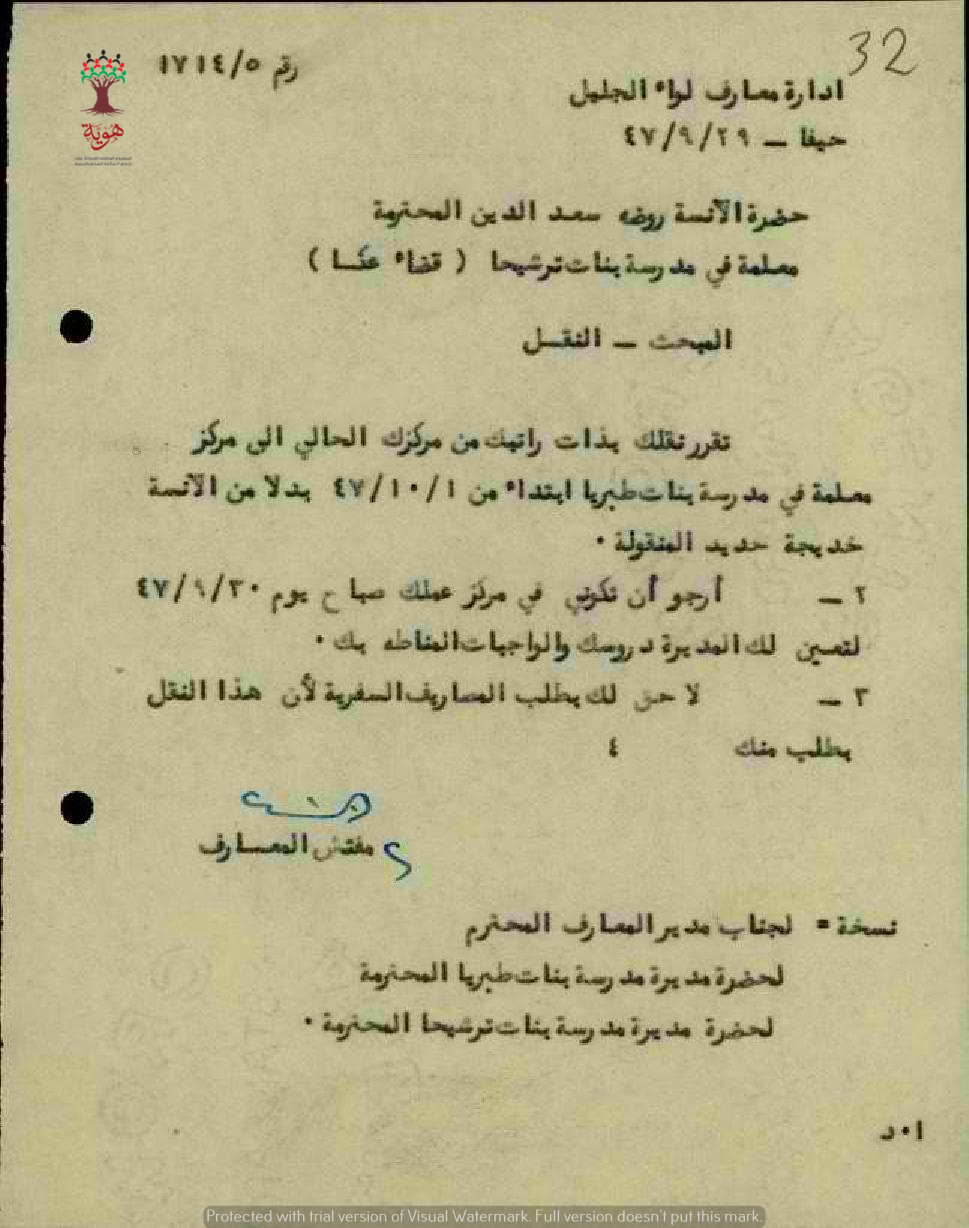 32
رقم ١٧١٤/٥
هوية
ادارة معارف لواء الجليل
حيفا – ٤٧/٩/٢٩
حضرة الآنسة روضه سعد الدين المحترمة
معلمة في مدرسة بنات ترشيحا ( قضاء عكا )
المبحث – النقل
تقرر نقلك بذات راتبك من مركزك الحالي الى مركز
معلمة في مدرسة بنات طبريا ابتداء من ٤٧/١٠/١ بدلا من الآنسة
خديجة حديد المنقولة .
٢ – أرجو أن تكوني في مركز عملك صباح يوم ٤٧/٩/٣٠
لتعيين لك المديرة دروسك والواجبات المناطه بك .
٣ – لا حق لك بطلب المصاريف السفرية لأن هذا النقل
بطلب منك ٤
مفتش المعارف
نسخة = لجناب مدير المعارف المحترم
لحضرة مديرة مدرسة بنات طبريا المحترمة
لحضرة مديرة مدرسة بنات ترشيحا المحترمة .
ا.د
Protected with trial version of Visual Watermark. Full version doesn't put this mark.